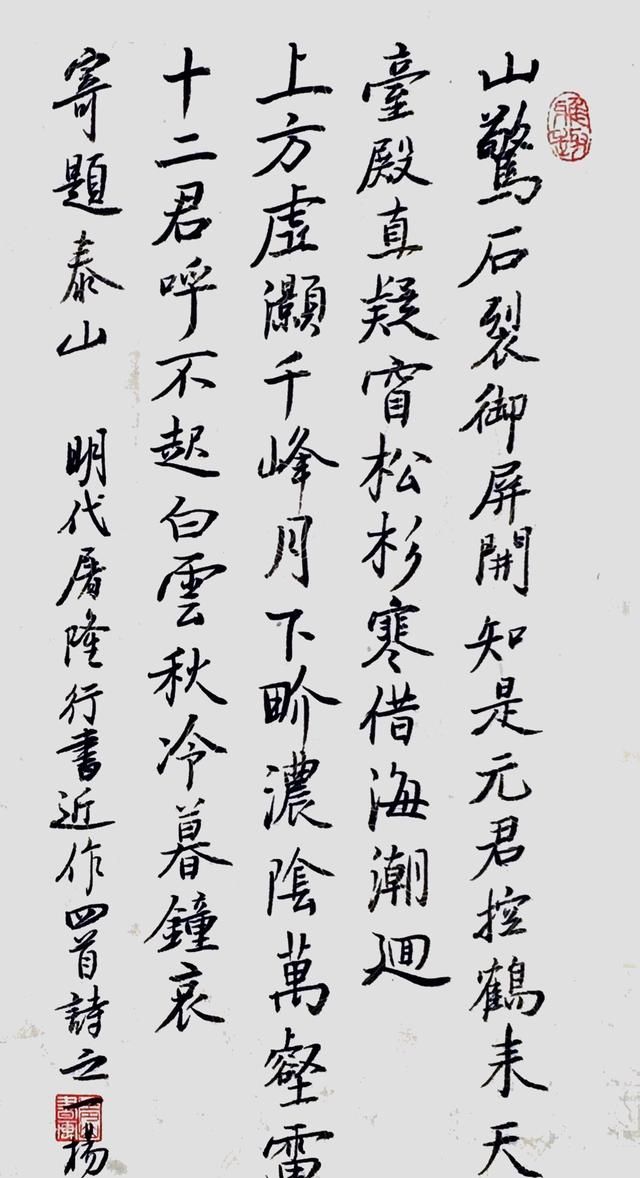 山驚石裂御屏開知是元君控鶴来天
臺殿真疑窅松杉寒借海潮廻
上方虛灝千峰月下畍濃陰萬壑雷
十二君呼不起白雲秋冷暮鐘哀
寄題泰山 明代屠隆行書近作四首詩之一揚